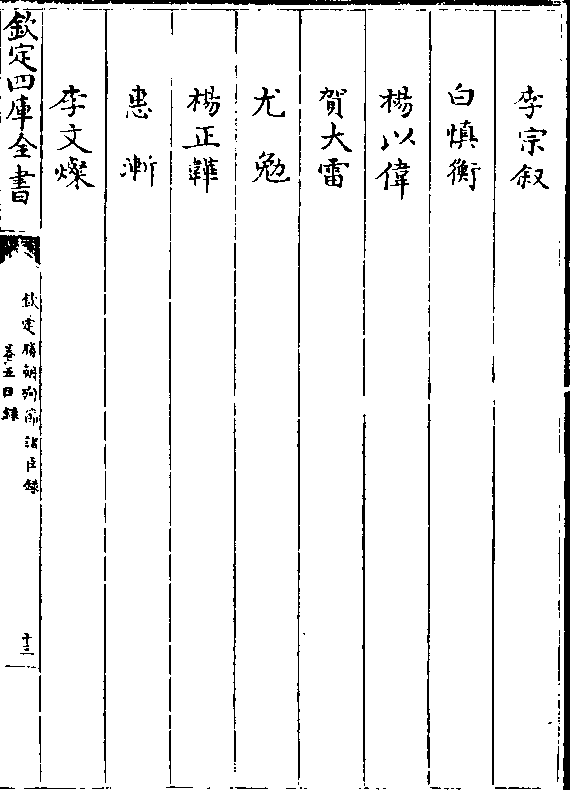 李宗叙
白慎衡
楊以偉
賀大雷
尤勉
楊正韡
惠漸
李文燦
欽定四庫全書
欽定勝朝殉節諸臣錄
卷五目錄
十三